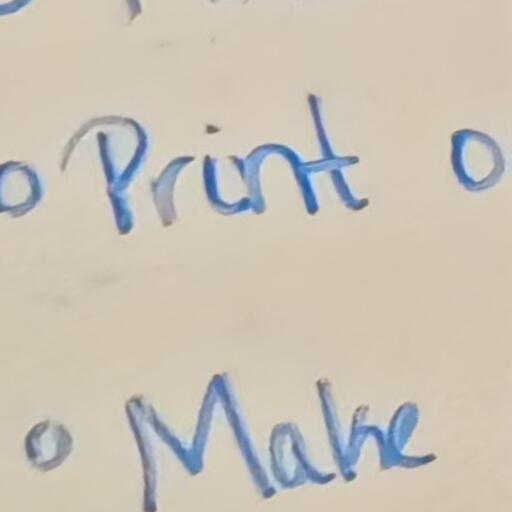 o Print o
o Make